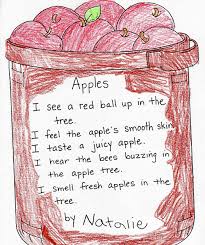 Apples
I see a red ball up in the
tree.
I feel the apple's smooth skin.
I taste a juicy apple.
I hear the bees buzzing in
the apple tree.
I smell fresh apples in the
tree.
by Natalie